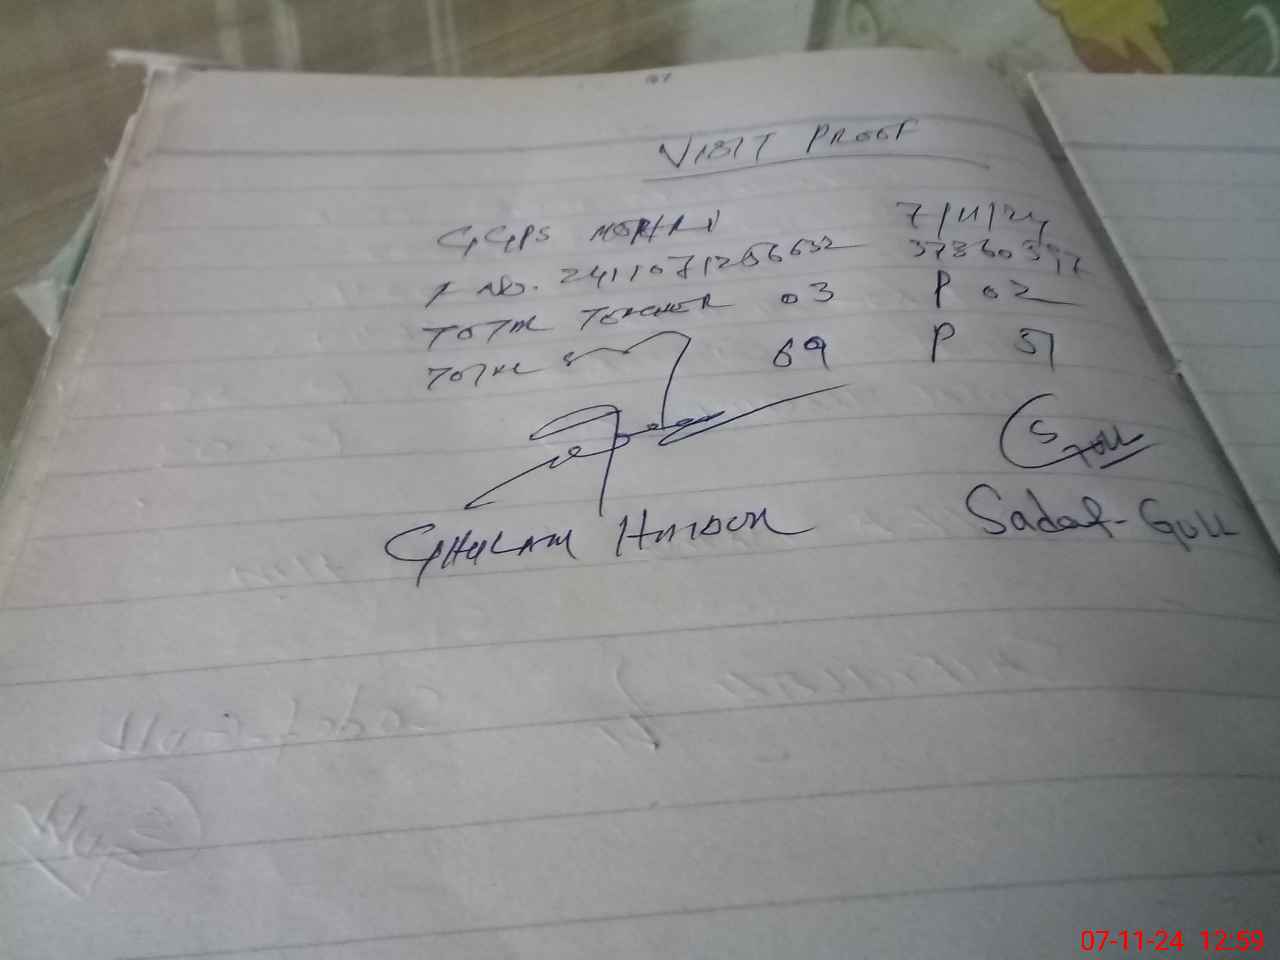 VISIT PROOF
GGPS 7/11/24
No. 2411071256632
TOTAL TEACHER 03 P 02
TOTAL 69 P 51
GHULAM HAIDER
Sadaf-Gull
07-11-24 12:59